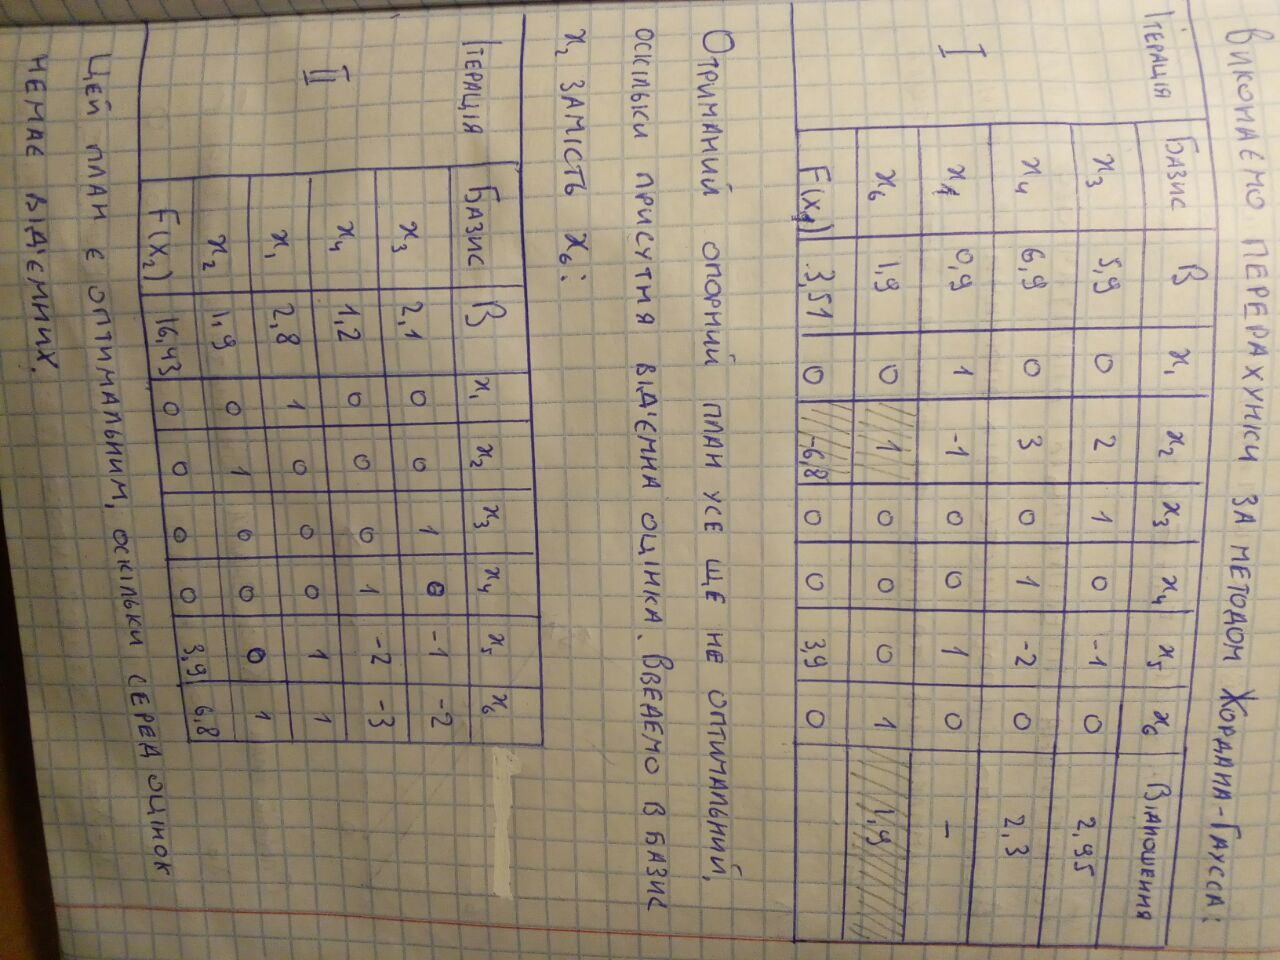 Виконаємо перерахунки за методом Жордана-Гаусса:
Ітерація Базис B x₁ x₂ x₃ x₄ x₅ x₆ Відношення
I x₃ 5,9 0 2 1 0 -1 0 2,95
x₄ 6,9 0 3 0 1 -2 0 2,3
x₁ 0,9 1 -1 0 0 1 0 –
x₆ 1,9 0 1 0 0 0 1 1,9
F(x₁) 3,51 0 -6,8 0 0 3,9 0
Отриманий опорний план усе ще не оптимальний,
оскільки присутня від'ємна оцінка. Введемо в базис
x₂ замість x₆:
Ітерація Базис B x₁ x₂ x₃ x₄ x₅ x₆
II x₃ 2,1 0 0 1 0 -1 -2
x₄ 1,2 0 0 0 1 -2 -3
x₁ 2,8 1 0 0 0 1 1
x₂ 1,9 0 1 0 0 0 1
F(x₂) 16,43 0 0 0 0 3,9 6,8
Цей план є оптимальним, оскільки серед оцінок
немає від'ємних.